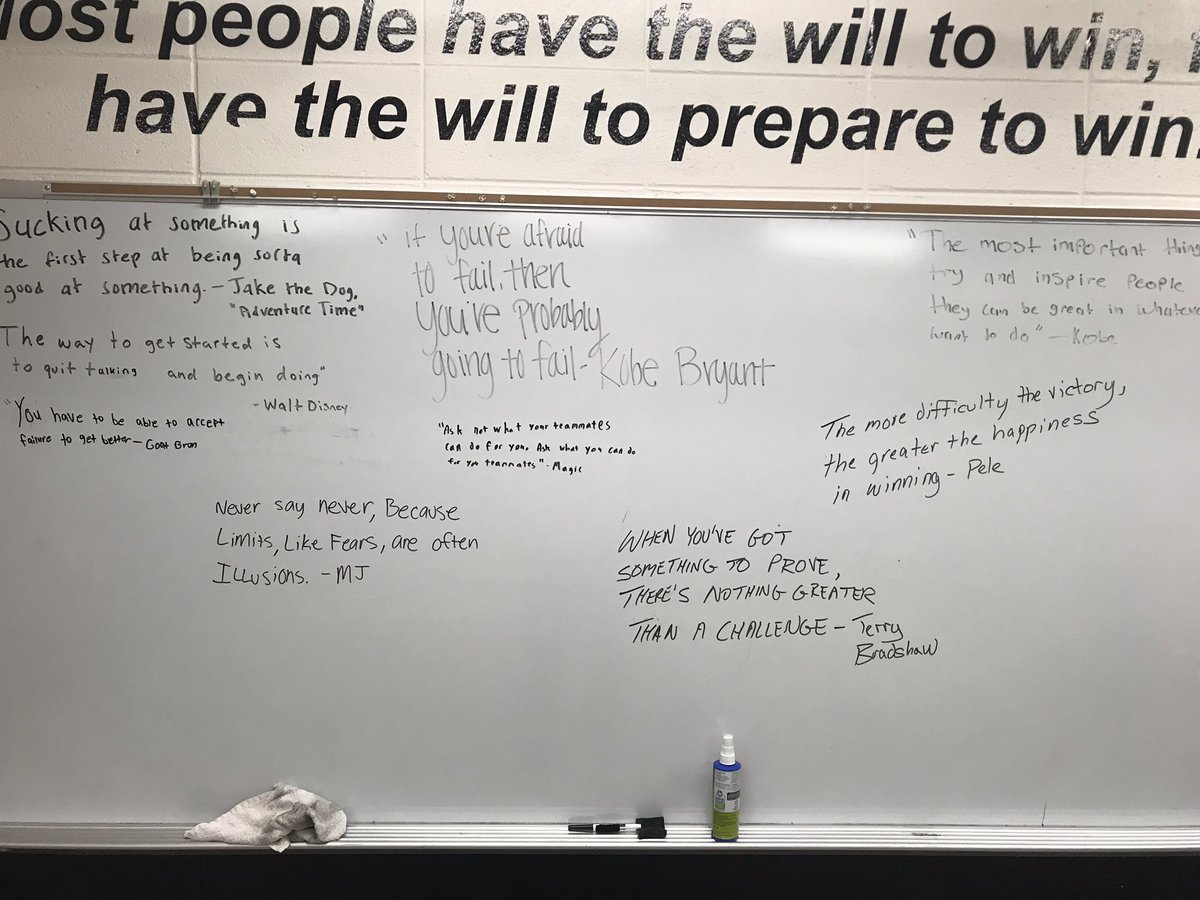 Most people have the will to win,
have the will to prepare to win.
Sucking at something is
the first step at being sorta
good at something. - Jake the Dog,
"Adventure Time"
The way to get started is
to quit talking and begin doing"
- Walt Disney
"You have to be able to accept
failure to get better - Goat Bron
"if you're afraid
to fail, then
you're probably
going to fail - Kobe Bryant
"Ask not what your teammates
can do for you. Ask what you can do
for you teammates" - Magic
"The most important thing
try and inspire people
they can be great in whatever
want to do" - Kobe
The more difficulty the victory,
the greater the happiness
in winning - Pele
Never say never, Because
Limits, Like Fears, are often
Illusions. - MJ
WHEN YOU'VE GOT
SOMETHING TO PROVE,
THERE'S NOTHING GREATER
THAN A CHALLENGE - Terry
Bradshaw